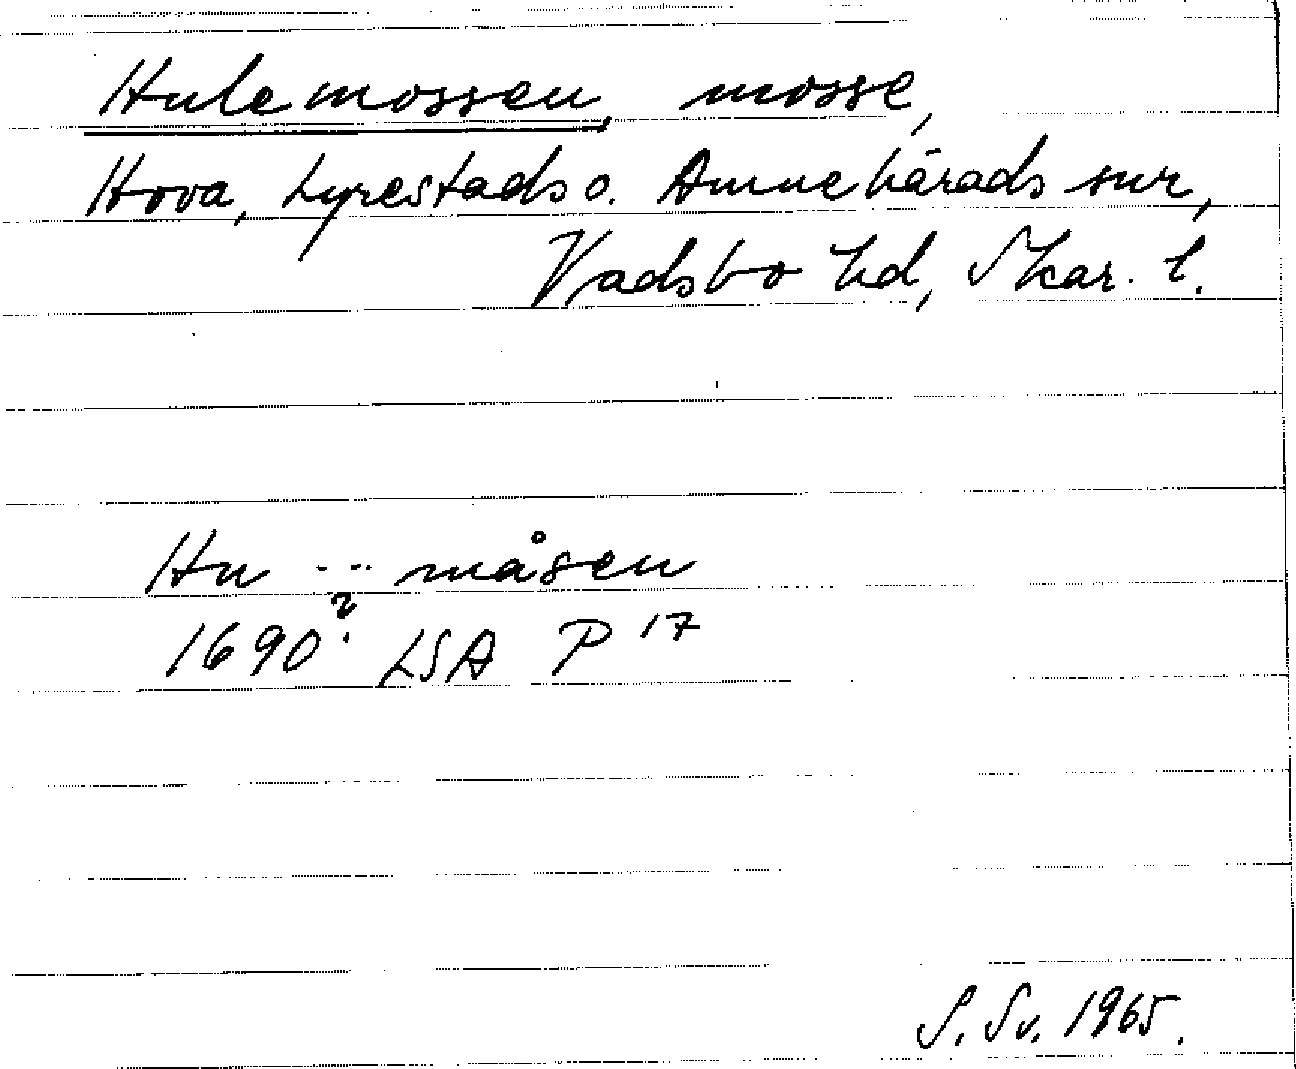 Hulemossen, mosse,
Hova, Lyrestads o. Amnehärads snr,
Vadsbo hd, Skar. l.
Hu ... måsen
1690? LSA P 17
S. Sv. 1965.